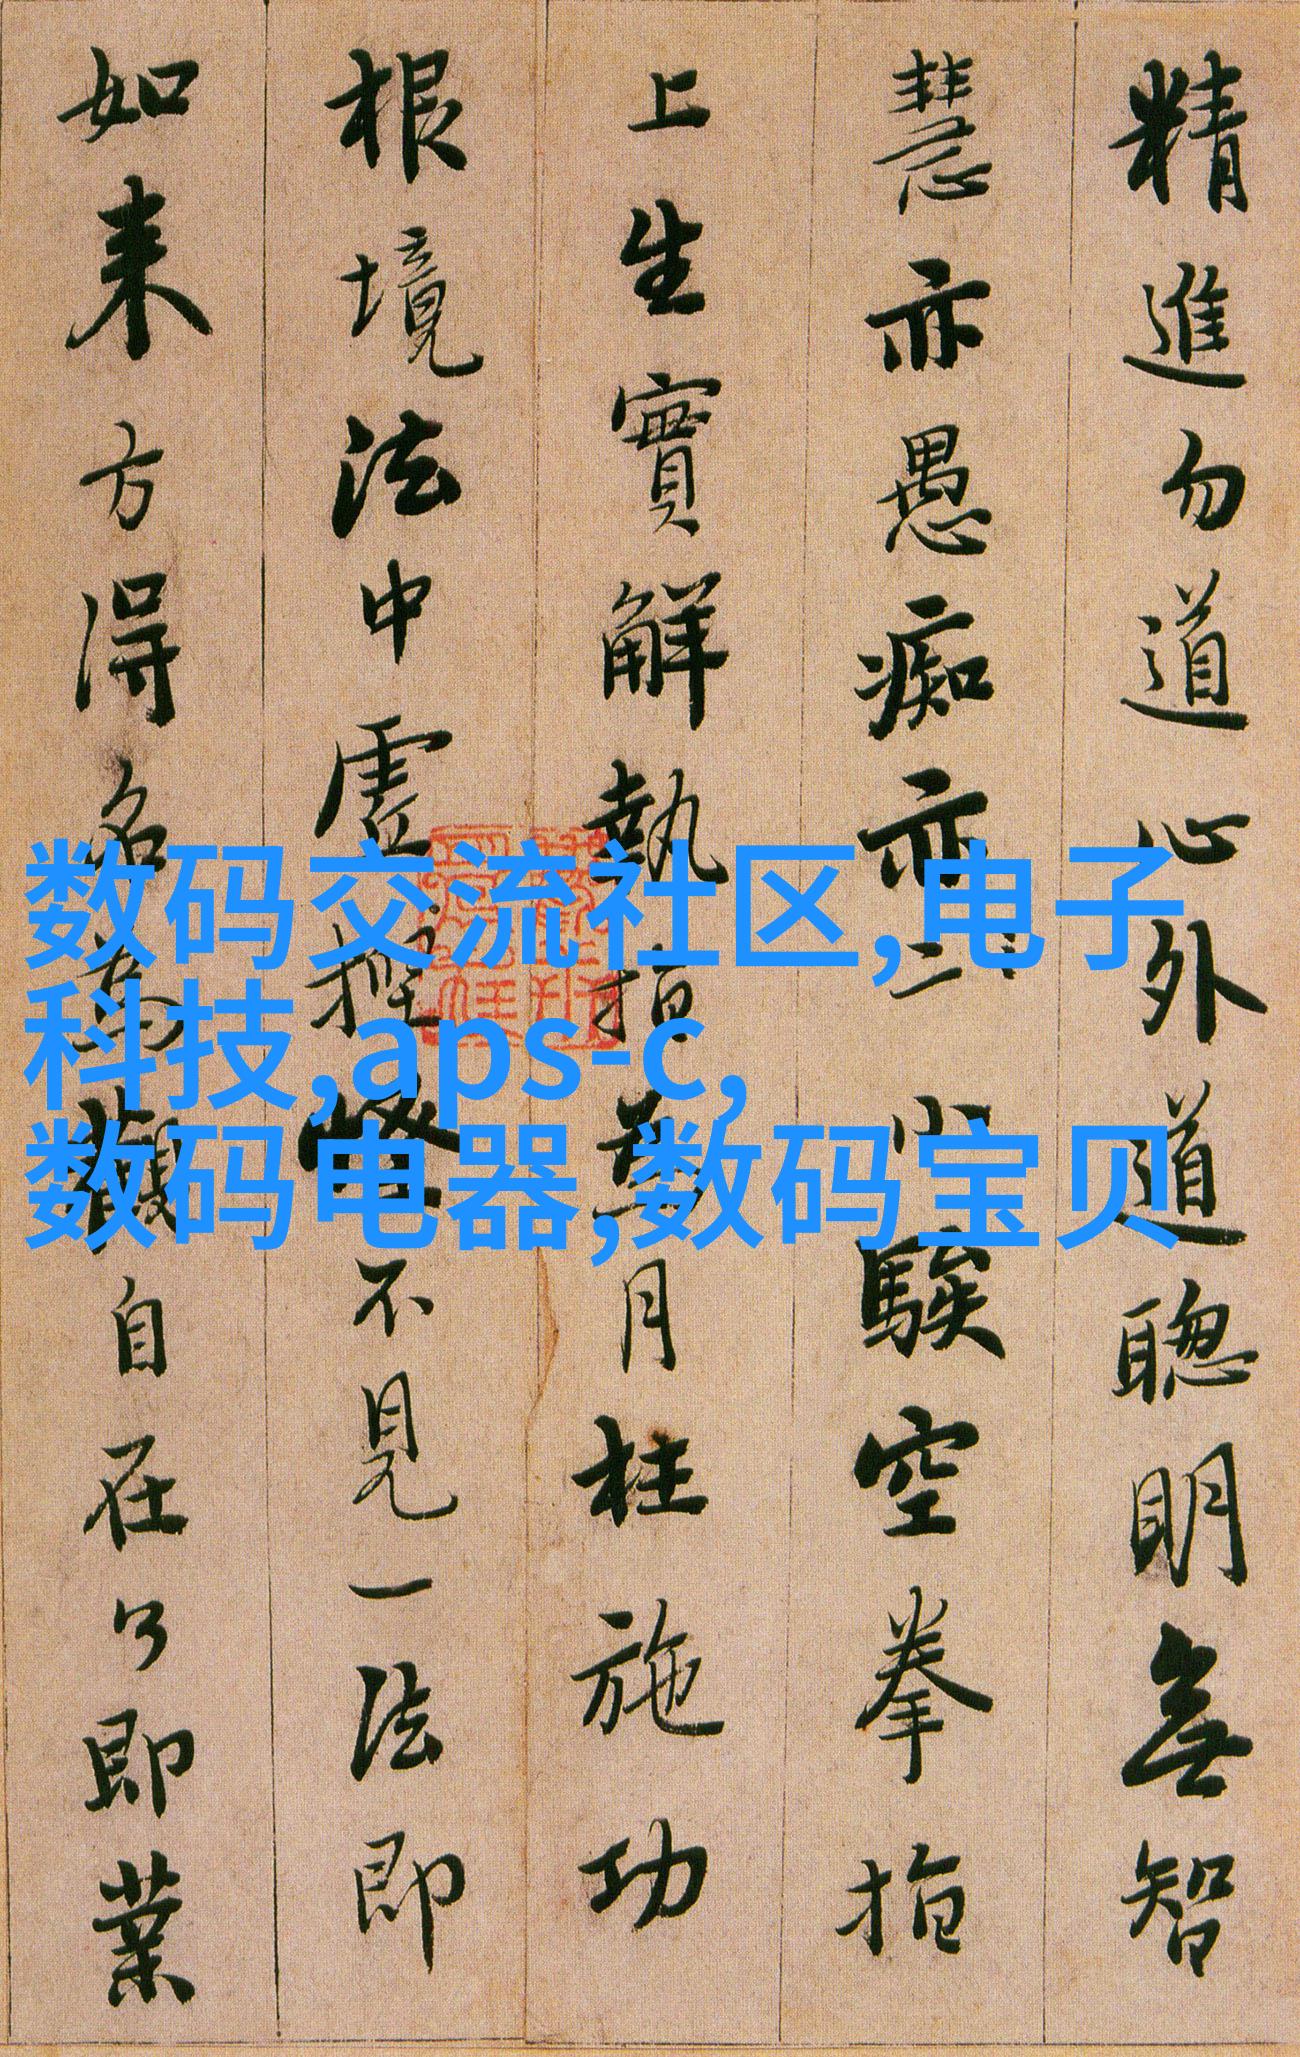 精進勿道心外道聰明無智
慧亦愚痴亦二小騃空拳指
上生實解執指為月枉施功
根境法中虛捏怪不見一法即
如来方得名為觀自在了即業
数码交流社区,电子
科技,aps-c,
数码电器,数码宝贝